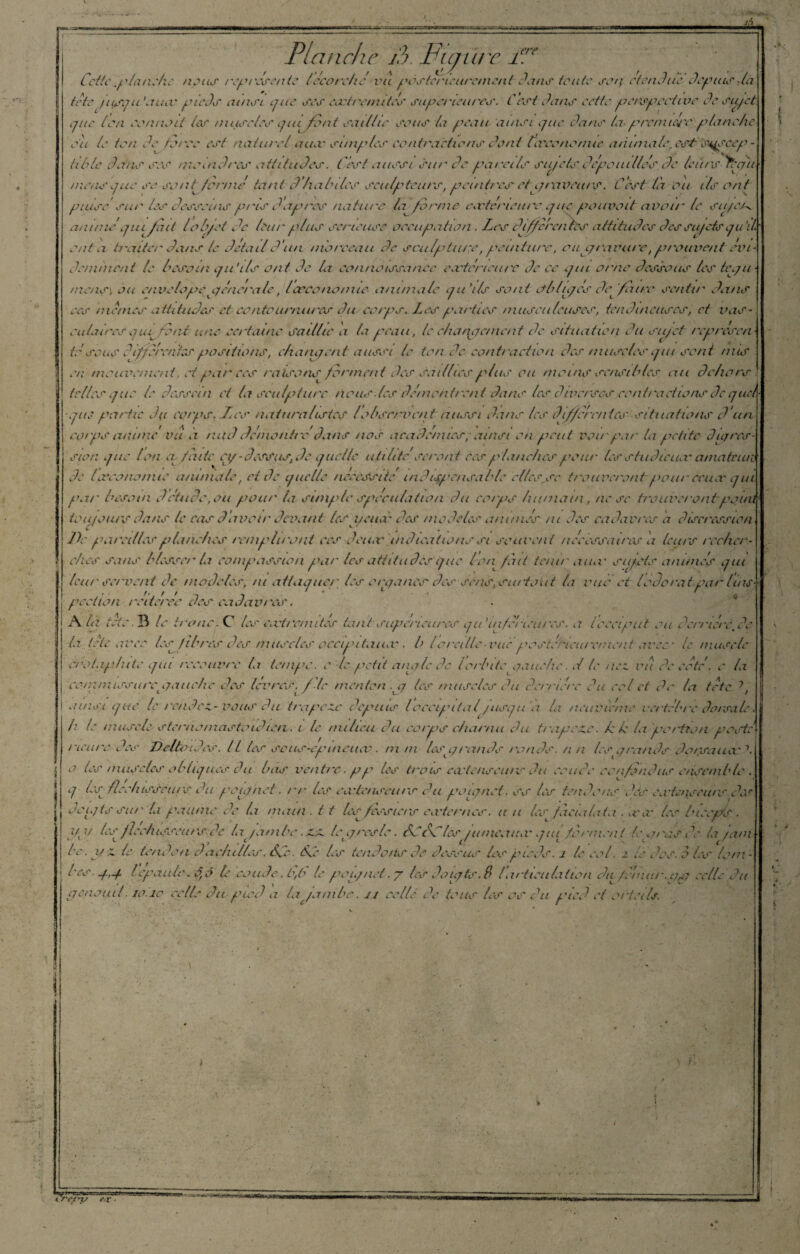 Planche 13. Figure 1.ere
Cette planche nous représente l'écorché vû postérieurement dans toute son étenduë depuis la
tête jusqu'aux pieds ainsi que ses extremités superieures. C'est dans cette perspective de sujet
que l'on connoit les muscles qui font saillie sous la peau ainsi que dans la premiére planche
où le ton de force est naturel aux simples contractions dont l'œconomie animale est suscep-
tible dans ses moindres attitudes. C'est aussi sur de pareils sujets dépouillés de leurs tégu
mens que se sont formé tant d'habiles sculpteurs, peintres et graveurs. C'est là où ils ont
puisé sur les desseins pris d'apres nature la forme exterieure que pouvoit avoir le sujet
animé qui fait l'objet de leur plus serieuse occupation. Les différentes attitudes des sujets qu'il
ont à traiter dans le détail d'un morceau de sculpture, peinture, ou gravure, prouvent évi-
demment le besoin qu'ils ont de la connoissance extérieure de ce qui orne dessous les tégu
mens, ou envelope générale, l'œconomie animale qu'ils sont obligés de faire sentir dans
ces mêmes attitudes et contournures du corps. Les parties musculeuses, tendineuses, et vas-
culaires qui font une certaine saillie à la peau, le changement de situation du sujet représen-
té sous différentes positions, changent aussi le ton de contraction des muscles qui sont mis
en mouvement, et par ces raisons forment des saillies plus ou moins sensibles au dehors
telles que le dessein et la sculpture nous les démontrent dans les diverses contractions de quel-
que partie du corps. Les naturalistes l'observent aussi dans les différentes situations d'un
corps animé vû à nud démontré dans nos académies; ainsi on peut voir par la petite digres-
sion que l'on a faite cy-dessus, de quelle utilité seront ces planches pour les studieux amateurs
de l'œconomie animale, et de quelle nécessité indispensable elles se trouveront pour ceux qui
par besoin d'étude, ou pour la simple spéculation du corps humain, ne se trouveront point
toujours dans le cas d'avoir devant les yeux des modeles animés ni des cadavres à discression.
De pareilles planches rempliront ces deux indications si souvent nécessaires à leurs recher-
ches sans blesser la compassion par les attitudes que l'on fait tenir aux sujets animés qui
leur servent de modeles, ni attaquer les organes des sens, surtout la vuë et l'odorat par l'ins-
pection réitérée des cadavres.
A la tête. B le tronc. C les extremités tant supérieures qu'inférieures. a l'occiput ou derriére de
la tête avec les fibres des muscles occipitaux. b l'oreille vuë postérieurement avec le muscle
crotaphite qui recouvre la tempe. c le petit angle de l'orbite gauche. d le nez vû de côté. e la
commissure gauche des lévres. f le menton. g les muscles du derriére du col et de la tête,
ainsi que le rendez-vous du trapeze depuis l'occipital jusqu'à la neuviéme vertébre dorsale.
h le muscle sternomastoïdien. i le milieu du corps charnu du trapeze. k k la portion posté-
rieure des Deltoïdes. l l les sous-épineux. m m les grands ronds. n n les grands dorsaux.
o les muscles obliques du bas ventre. p p les trois extenseurs du coude confondus ensemble.
q les fléchisseurs du poignet. r r les extenseurs du poignet. s s les tendons des extenseurs des
doigts sur la paume de la main. t t les fessiers externes. u u les facialata. x x les biceps.
y y les fléchisseurs de la jambe. z z le gresle. &c &c les jumeaux qui forment le gras de la jam
be. y z le tendon d'achilles. &c. &c les tendons de dessus les pieds. 1 le col. 2 le dos. 3 les lom-
bes. 4,4 l'épaule. 5,5 le coude. 6,6 le poignet. 7 les doigts. 8 l'articulation du fémur. 9,9 celle du
genouil. 10.10 celle du pied à la jambe. 11 celle de tous les os du pied et orteils.
Crepy ex.